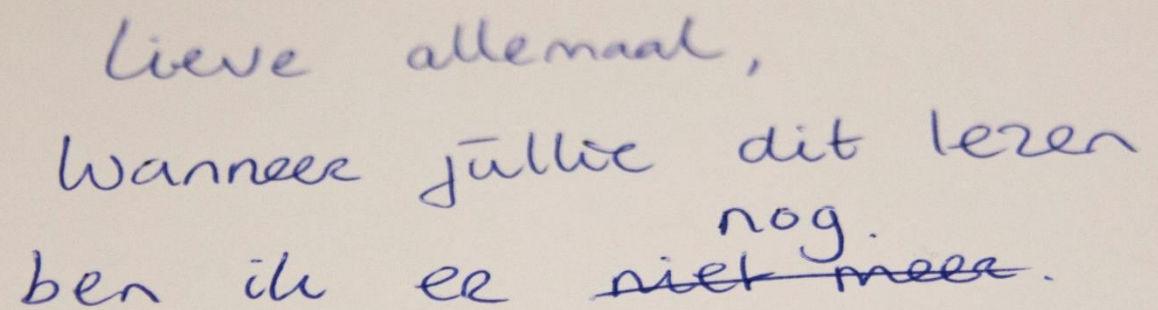 Lieve allemaal,
Wanneer jullie dit lezen
nog.
ben ik er niet meer.